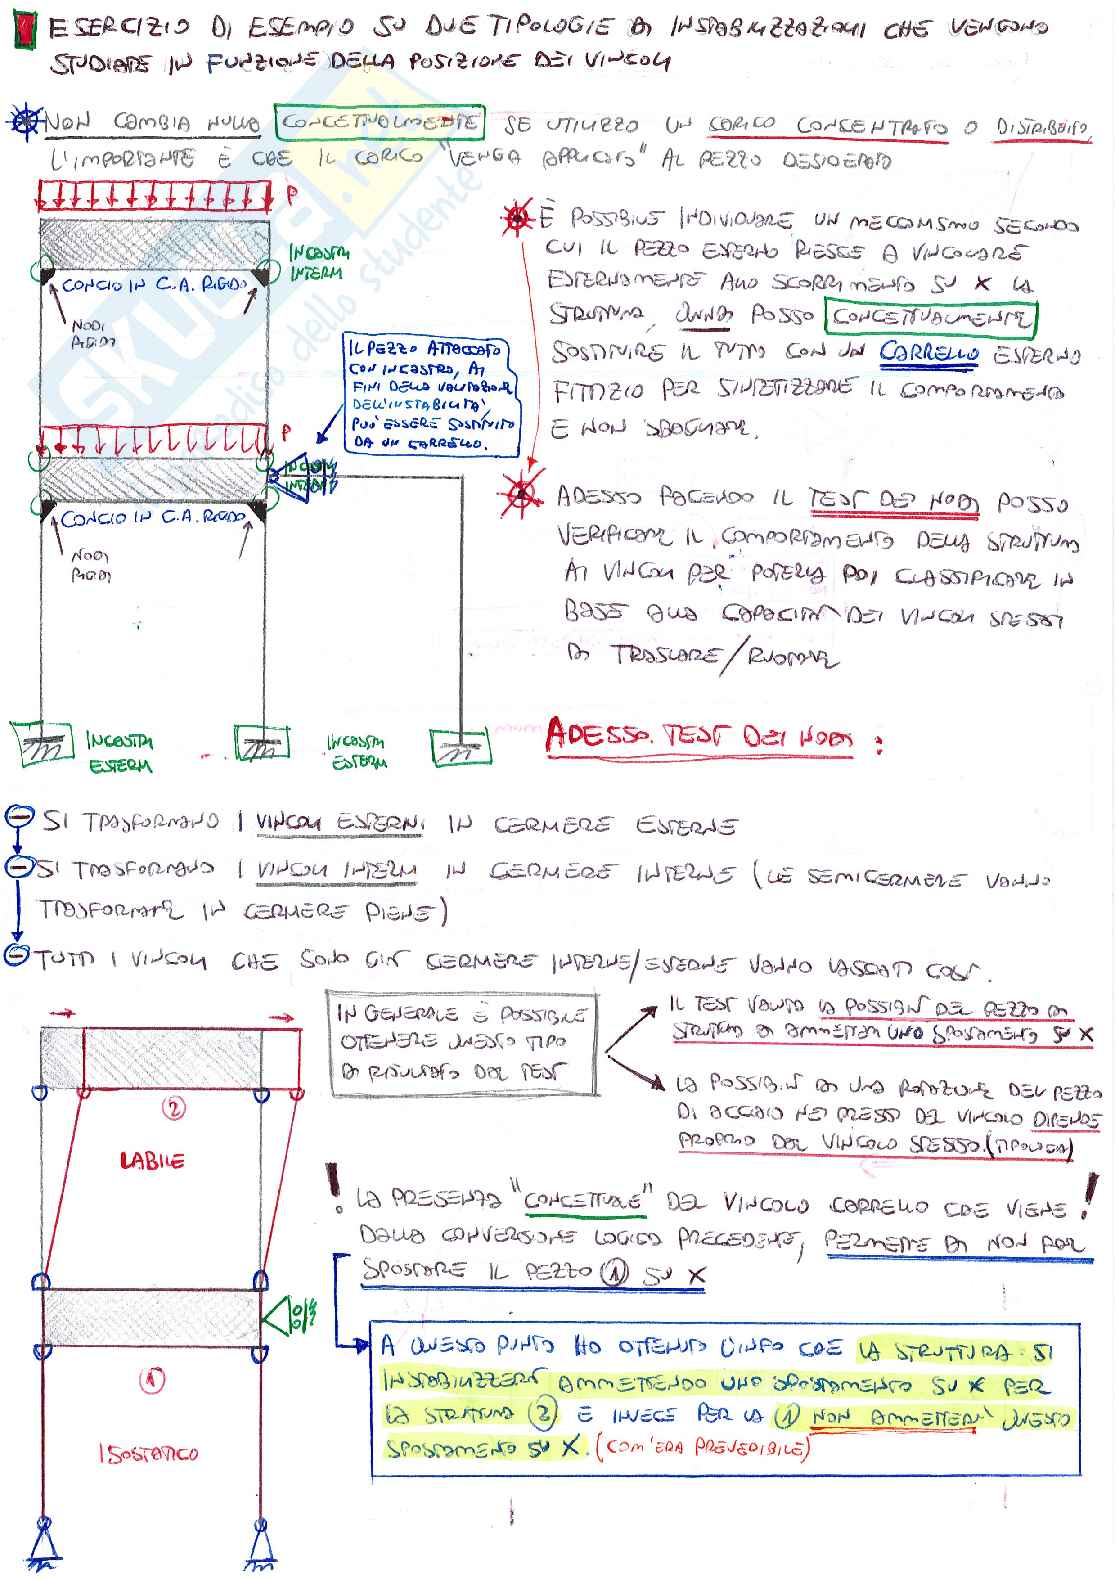 ESERCIZIO DI ESEMPIO SU DUE TIPOLOGIE DI INSTABILIZZAZIONI CHE VENGONO
STUDIATE IN FUNZIONE DELLA POSIZIONE DEI VINCOLI
NON CAMBIA NULLA CONCETTUALMENTE SE UTILIZZO UN CARICO CONCENTRATO O DISTRIBUITO,
L'IMPORTANTE È CHE IL CARICO "VENGA APPLICATO" AL PEZZO DESIDERATO
P
INCASTRI
INTERNI
CONCIO IN C.A. RIGIDO
NODI
RIGIDI
IL PEZZO ATTACCATO
CON INCASTRO, AI
FINI DELLA VALUTAZIONE
DELL'INSTABILITA',
PUO' ESSERE SOSTITUITO
DA UN CARRELLO.
P
INCASTRI
INTERNI
CONCIO IN C.A. RIGIDO
NODI
RIGIDI
INCASTRI
ESTERNI
INCASTRI
ESTERNI
SKUOLA.net
dello studente
È POSSIBILE INDIVIDUARE UN MECCANISMO SECONDO
CUI IL PEZZO ESTERNO RIESCE A VINCOLARE
ESTERNAMENTE ALLO SCORRIMENTO SU X LA
STRUTTURA, QUINDI POSSO CONCETTUALMENTE
SOSTITUIRE IL TUTTO CON UN CARRELLO ESTERNO
FITTIZIO PER SINTETIZZARE IL COMPORTAMENTO
E NON SBAGLIARE.
ADESSO FACENDO IL TEST DEI NODI POSSO
VERIFICARE IL COMPORTAMENTO DELLA STRUTTURA
AI VINCOLI PER POTERLA POI CLASSIFICARE IN
BASE ALLA CAPACITÀ DEI VINCOLI STESSI
DI TRASLARE/RUOTARE
ADESSO TEST DEI NODI:
SI TRASFORMANO I VINCOLI ESTERNI IN CERNIERE ESTERNE
SI TRASFORMANO I VINCOLI INTERNI IN CERNIERE INTERNE (LE SEMICERNIERE VANNO
TRASFORMATE IN CERNIERE PIENE)
TUTTI I VINCOLI CHE SONO GIÀ CERNIERE INTERNE/ESTERNE VANNO LASCIATI COSÌ.
IN GENERALE È POSSIBILE
OTTENERE QUESTO TIPO
DI RISULTATO DAL TEST
IL TEST VALUTA LA POSSIBILITÀ DEL PEZZO DI
STRUTTURA DI AMMETTERE UNO SPOSTAMENTO SU X
LA POSSIBILITÀ DI UNA ROTAZIONE DEL PEZZO
DI ACCIAIO NEI PRESSI DEL VINCOLO DIPENDE
PROPRIO DAL VINCOLO STESSO. (TIPOLOGIA)
2
LABILE
! LA PRESENZA "CONCETTUALE" DEL VINCOLO CARRELLO CHE VIENE !
DALLA CONVERSIONE LOGICA PRECEDENTE, PERMETTE DI NON FAR
SPOSTARE IL PEZZO 1 SU X
1
ISOSTATICO
A QUESTO PUNTO HO OTTENUTO L'INFO CHE LA STRUTTURA SI
INSTABILIZZERÀ AMMETTENDO UNO SPOSTAMENTO SU X PER
LA STRUTTURA 2 E INVECE PER LA 1 NON AMMETTERÀ QUESTO
SPOSTAMENTO SU X. (COM'ERA PREVEDIBILE)